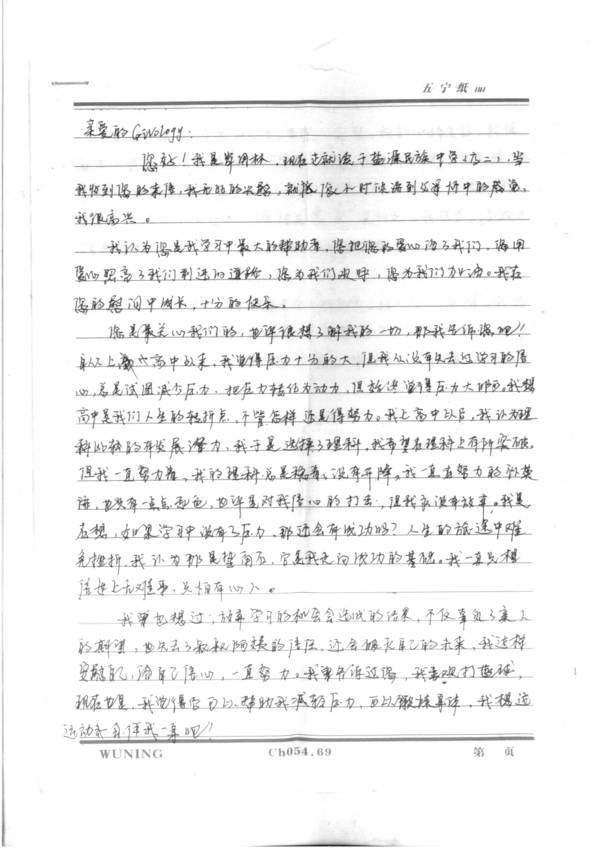 五宁纸
亲爱的Ginology:
您好!我是毕明林,现在已就读于盐源民族中学(九二),当
我收到您的来信,我无比的
我很高兴。
我认为您是我学习中最大的帮助者,您把您的爱心给了我们,您用
爱心照亮了我们前进的道路,您为我们,您为我们加油。我在
您的慰问中成长,十分的快乐。
您是最关心我们的,也许很想了解我的一切,那我告诉您吧!!
自从上高中以来,我觉得压力十分的大,但我从没有失去过学习的信
心,总是试图减少压力,把压力转化为动力,但还是觉得压力大,我想
高中是我们人生的转折点,不管怎样还是得努力。我上高中以后,我认为理
科比较的有发展潜力,我于是选择了理科,我希望在理科上有所突破。
但我一直努力着,我的理科总是稳着,没有下降。我一直在努力的补英
语,也没有一点起色,也许是对我信心的打击,但我永没有放弃。我是
在想,如果学习中没有了压力,那还会有成功吗?人生的旅途中难
免挫折,我认为那是垫脚石,它是我走向成功的基础。我一直只想
信世上无难事,只怕有心人。
我曾也想过,放弃学习的机会会造成的结果,不仅辜负了家人
的期望,也失去了叔叔阿姨的信任,还会毁灭自己的未来,我这样
安慰自己,给自己信心,一直努力。我曾告诉过您,我喜欢打篮球,
现在也是,我觉得它可以帮助我减轻压力,可以锻炼身体,我想这
运动会伴我一辈吧!!
WUNING
Ch054.69
第 页